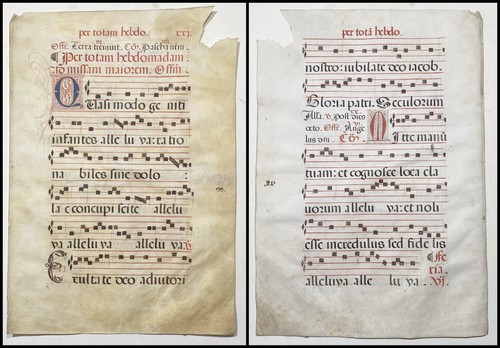 per totam hebdo. XXI.
Offe. Terra tremuit. Cõ. Pascha nrm
Per totam hebdomadam
ad missam maiorem. Offm
Quasi modo ge niti
infantes alle lu ya: ratio
na biles sine dolo
lac concupi scite allelu
ya allelu ya allelu ya. V
Exultate deo adiutori
per totã hebdo.
nostro: iubilate deo iacob.
Gloria patri. Seculorum
Alla. V. Post dies
octo. Offe. Ange
lus dñi. Cõ. Mitte manũ
tuam: et cognosce loca cla
uorum allelu ya: et noli
esse incredulus sed fide lis
alleluya alle lu ya. Fe
ria
VI.